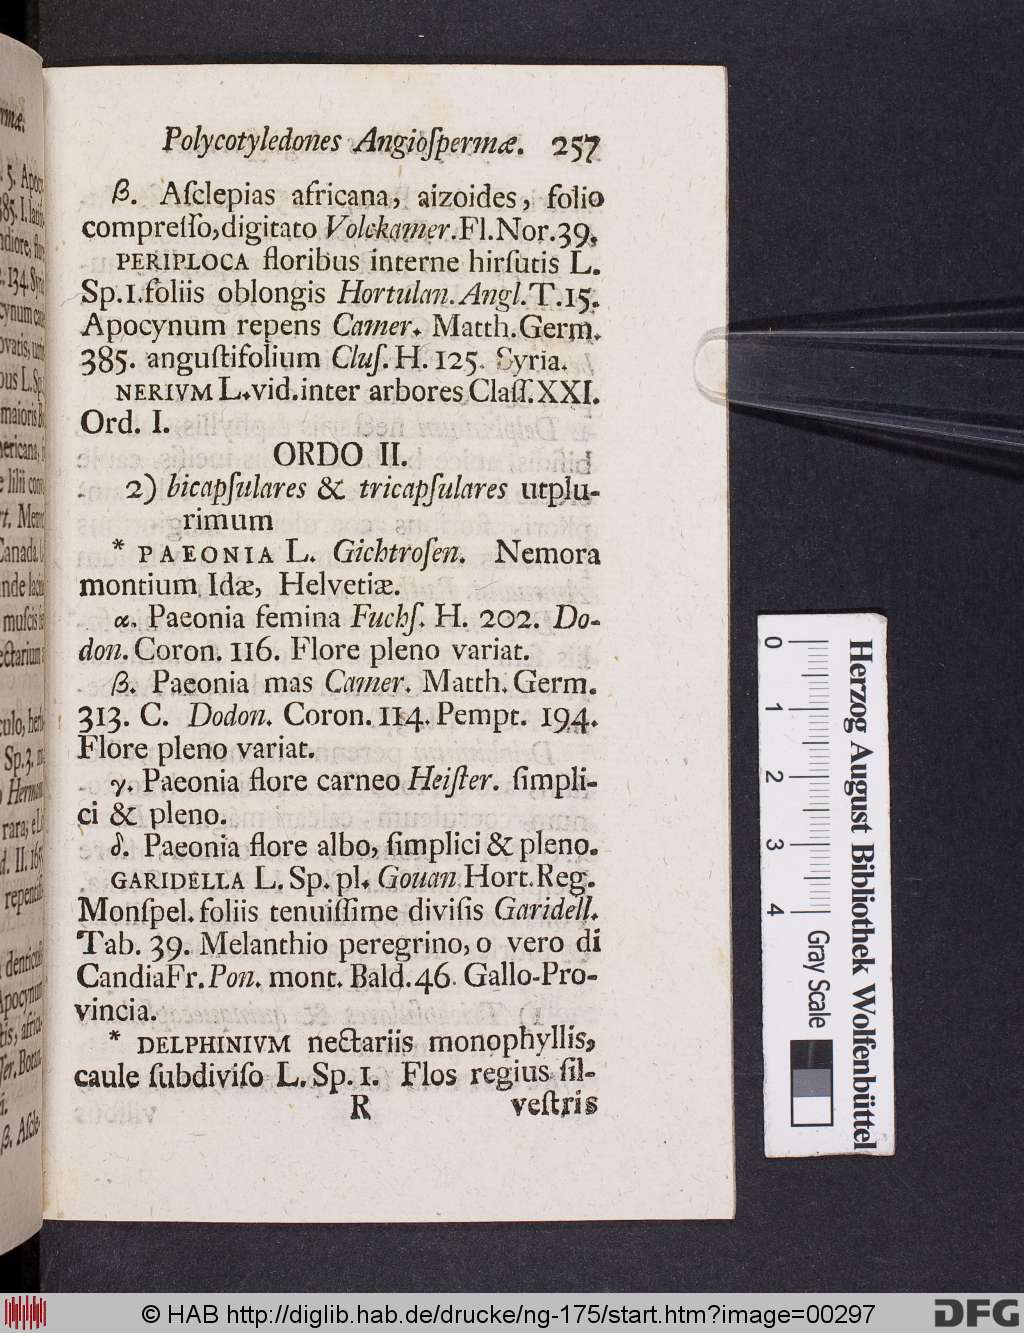 Polycotyledones Angioſpermæ. 257
β. Aſclepias africana, aizoides, folio
compreſſo, digitato Volckamer. Fl. Nor. 39.
PERIPLOCA floribus interne hirſutis L.
Sp. 1. foliis oblongis Hortulan. Angl. T. 15.
Apocynum repens Camer. Matth. Germ.
385. anguſtifolium Cluſ. H. 125. Syria.
NERIVM L. vid. inter arbores Claſſ. XXI.
Ord. I.
ORDO II.
2) bicapſulares & tricapſulares utplu-
rimum
* PAEONIA L. Gichtroſen. Nemora
montium Idæ, Helvetiæ.
α. Paeonia femina Fuchſ. H. 202. Do-
don. Coron. 116. Flore pleno variat.
β. Paeonia mas Camer. Matth. Germ.
313. C. Dodon. Coron. 114. Pempt. 194.
Flore pleno variat.
γ. Paeonia flore carneo Heiſter. ſimpli-
ci & pleno.
δ. Paeonia flore albo, ſimplici & pleno.
GARIDELLA L. Sp. pl. Gouan Hort. Reg.
Monſpel. foliis tenuiſſime diviſis Garidell.
Tab. 39. Melanthio peregrino, o vero di
Candia Fr. Pon. mont. Bald. 46. Gallo-Pro-
vincia.
* DELPHINIVM nectariis monophyllis,
caule ſubdiviſo L. Sp. 1. Flos regius ſil-
R veſtris
0 1 2 3 4 Gray Scale
Herzog August Bibliothek Wolfenbüttel
© HAB http://diglib.hab.de/drucke/ng-175/start.htm?image=00297
DFG